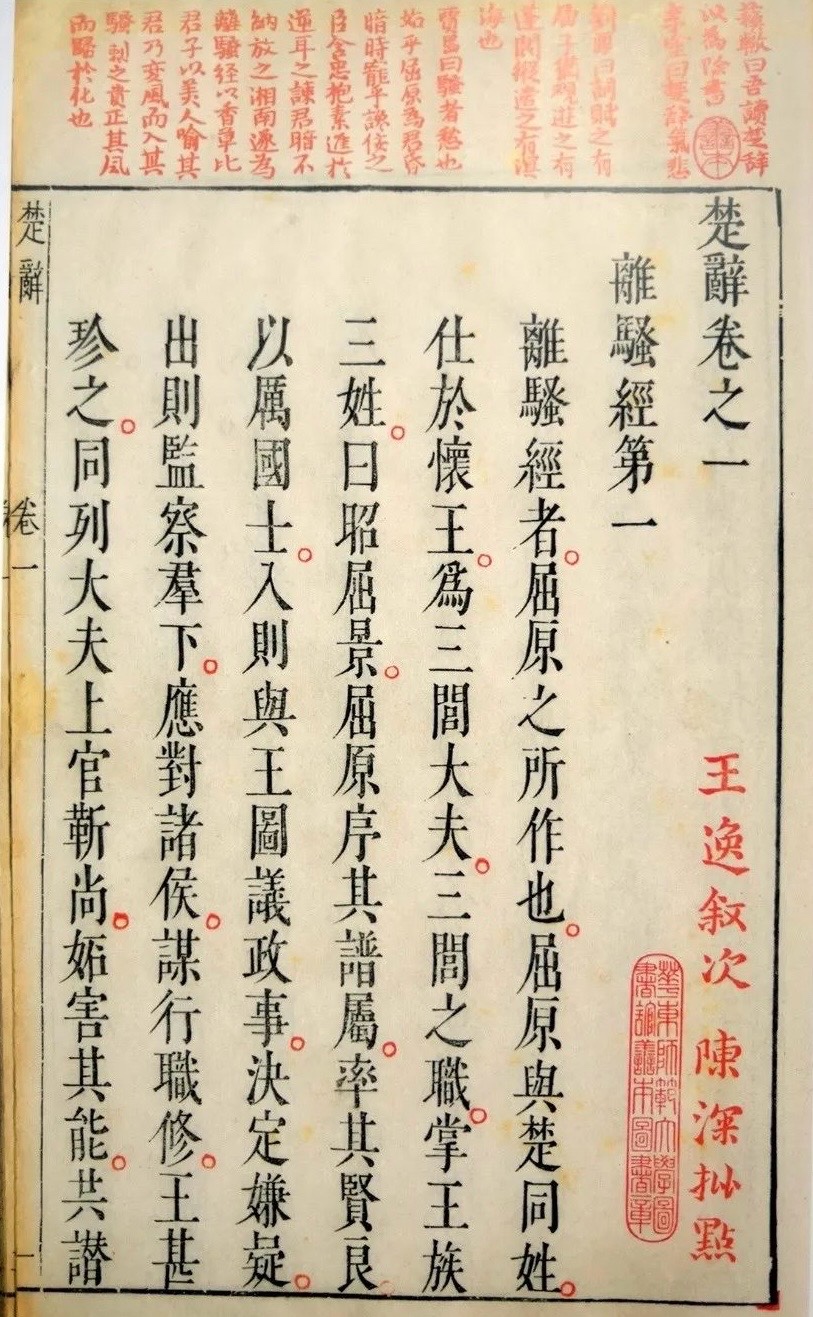 蘇轍曰吾讀楚辭
以為除書
李塗曰楚辭氣悲
劉勰曰詞賦之有
屈子猶觀遊之有
蓬閬縱遣之有溟
海也
賈島曰騷者愁也
始乎屈原為君昏
暗時寵乎讒佞之
臣含忠抱素進於
逆耳之諫君暗不
納放之湘南遂為
離騷經以香草比
君子以美人喻其
君乃变風而入其
騷刺之貴正其風
而歸於化也
楚辭卷之一
王逸叙次 陳深批點
離騷經第一
華東師範大學圖
書館善本圖書章
離騷經者。屈原之所作也。屈原與楚同姓。
仕於懷王。爲三閭大夫。三閭之職。掌王族
三姓。曰昭屈景。屈原序其譜屬。率其賢良
以厲國士。入則與王圖議政事。決定嫌疑。
出則監察羣下。應對諸侯。謀行職修。王甚
珍之。同列大夫上官靳尚。妬害其能。共譖
楚辭 卷一 一